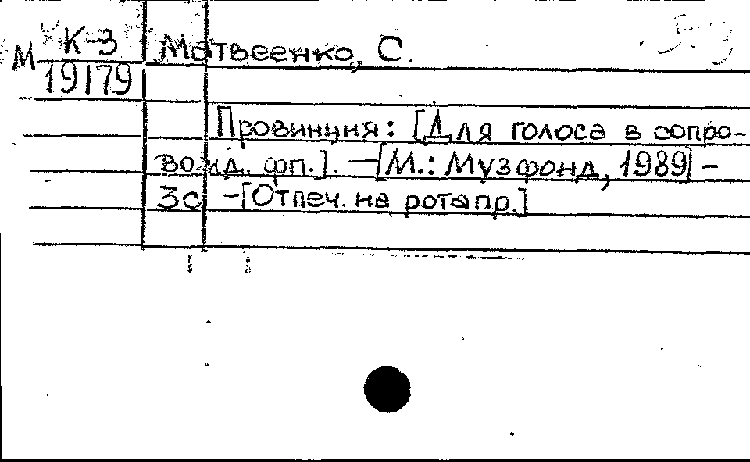 М К-3 Матвеенко, С.
19179
Провинция: [Для голоса в сопро-
вожд. фп.]. — [М.: Музфонд, 1989] –
3с – [Отпеч. на ротапр.]